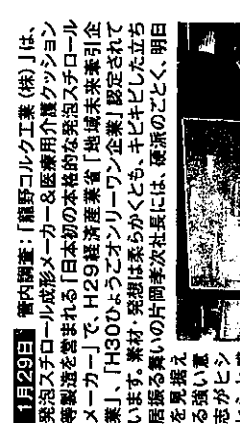 1月29日 管内調査：「龍野コルク工業(株)」は、
発泡スチロール成形メーカー&医療用介護クッション
等製造を営まれる「日本初の本格的な発泡スチロール
メーカー」で、H29経済産業省「地域未来牽引企
業」、「H30ひょうごオンリーワン企業」認定されて
います。素材・発想は柔らかくとも、キビキビした立ち
居振る舞いの片岡孝次社長には、硬派のごとく、明日
を見据え
る強い意
志がヒシ